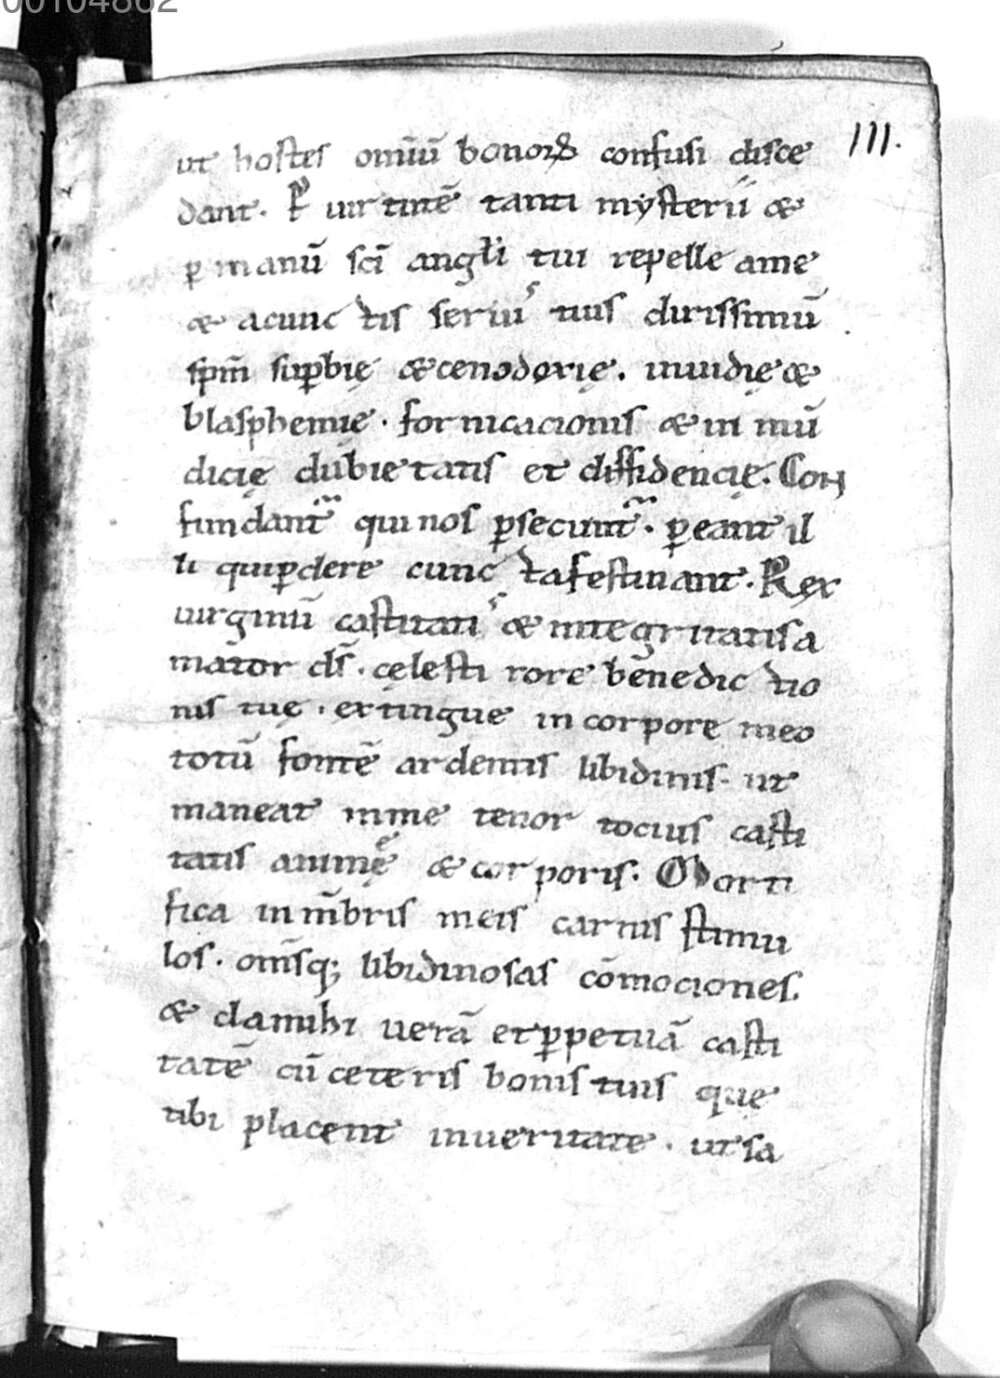 00104862
111.
ut hostes om̄iū bonoꝝ confusi disce
dant. P uirtutē tanti mysterii &
ꝑ manū sc̄i angłi tui repelle ame
& acunctis seruis tuis durissimū
sp̄m suꝑbię & cenodoxię. inuidię &
blasphemię. fornicacionis & in mū
dicię dubietatis et diffidencię. Con
fundant᷑ qui nos ꝑsecunt᷑. ꝑeant il
li quiꝑdere cuncta festinant. Rex
uirginū castitatis & integritatis a
mator ds̄. celesti rore benedictio
nis tuę. extingue in corpore meo
totū fontē ardentis libidinis. ut
maneat inme tenor tocius casti
tatis animę & corporis. Morti
fica in m̄bris meis carnis stimu
los. om̄sq; libidinosas cōmociones.
& damihi uerā et ꝑpetuā casti
tatē cū ceteris bonis tuis que
tibi placent inueritate. ut sa